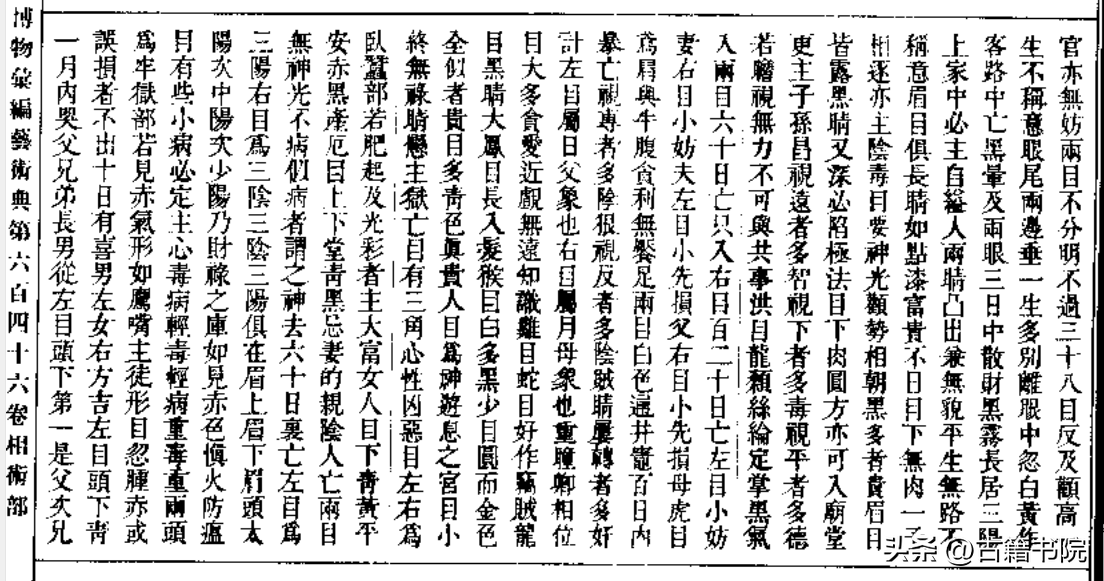 官亦無妨兩目不分明不過三十八目反及觀高
生不稱意眼尾兩邊垂一生多別離眼中忽白黃作
客路中亡黑暈及兩眼三日中散財黑霧長居三陽
上家中必主自縊人兩睛凸出兼無貌平生無路不
稱意眉目俱長睛如點漆富貴不日目下無肉一子
相逐亦主陰毒目要神光觀勢相朝黑多者貴眉目
皆露黑睛又深必陷極法目下肉圓方亦可入廟堂
更主子孫昌視遠者多智視下者多毒視平者多德
若瞻視無力不可與共事洪目龍顏絲綸定掌黑氣
入兩目六十日亡只入右目百二十日亡左目小妨
妻右目小妨夫左目小先損父右目小先損母虎目
鳶肩與牛腹貪利無饜足兩目白色逼井竈百日內
暴亡視專者多陰狠視反者多陰賊睛屢轉者多奸
計左目屬日父象也右目屬月母象也重瞳卿相位
目大多貪愛近覷無遠知識雞目蛇目好作竊賊龍
目黑睛大鳳目長入髮候目白多黑少目圓而金色
全似者貴目多靑色眞貴人目爲神遊息之宮目小
終無祿睛懸主獄亡目有三角心性凶惡目左右爲
臥蠶部若肥起及光彩者主大富女人目下靑黃平
安赤黑產厄目上下堂靑黑忌妻的親陰人亡兩目
無神光不病似病者謂之神去六十日裏亡左目爲
三陽右目爲三陰三陰三陽俱在眉上眉下肩頭太
陽次中陽次少陽乃財祿之庫如見赤色愼火防瘟
目有些小病必定主心毒病輕毒輕病重毒重兩頭
爲牢獄部若見赤氣形如鷹嘴主徒形目忽腫赤或
誤損者不出十日有喜男左女右方吉左目頭下靑
一月內哭父兄弟長男從左目頭下第一是父次兄
博物彙編藝術典第六百四十六卷相術部
头条@古籍书院